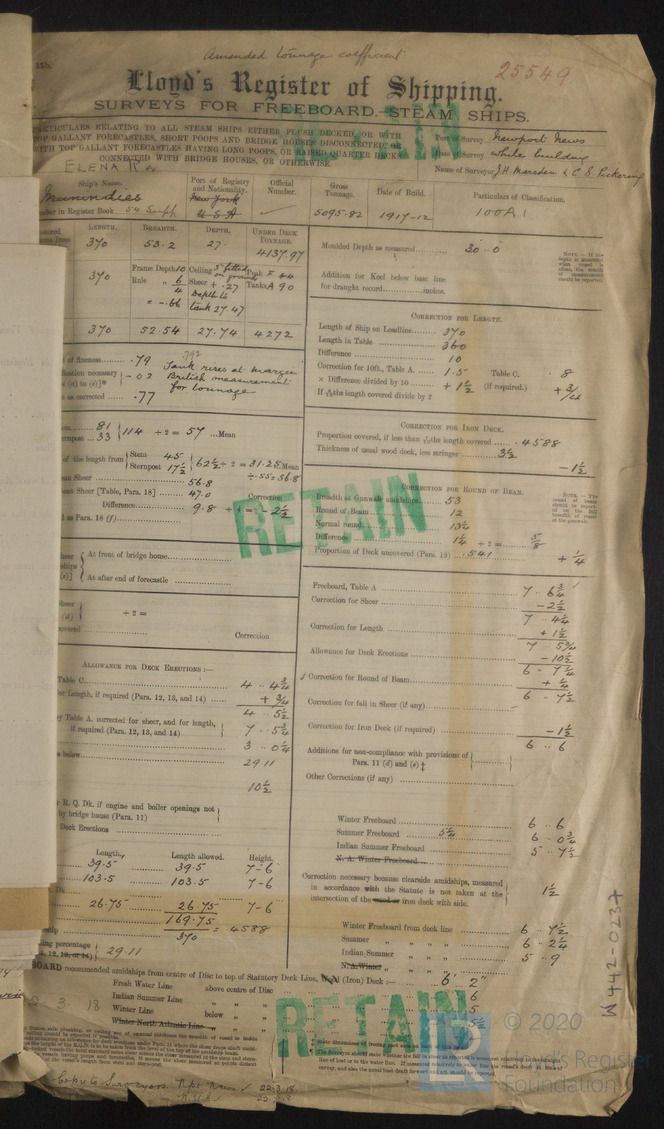 Amended tonnage coefficient
25549
Lloyd's Register of Shipping.
SURVEYS FOR FREEBOARD.-STEAM SHIPS.
PARTICULARS RELATING TO ALL STEAM SHIPS EITHER FLUSH DECKED, OR WITH
TOP GALLANT FORECASTLES, SHORT POOPS AND BRIDGE HOUSES DISCONNECTED, OR
WITH TOP GALLANT FORECASTLES HAVING LONG POOPS, OR RAISED QUARTER DECKS
CONNECTED WITH BRIDGE HOUSES, OR OTHERWISE.
Port of Survey Newport News
Date of Survey While building
Name of Surveyor J.H. Marsden & C.S. Pickering
ELENA R
Ship's Name.
Port of Registry and Nationality.
Official Number.
Gross Tonnage.
Date of Build.
Particulars of Classification.
Munindies
New York
U.S.A
5095.82
1917-12
100A1
Number in Register Book 54 Supp
LENGTH. BREADTH. DEPTH. UNDER DECK TONNAGE.
370 53.2 27. 4137.97
370
Frame Depth 10
Rule " 6
4
= -.66
Ceiling
Sheer + .27
Depth to tank 27.47
Peak F 44
Tanks A 90
370 52.54 27.74 4272
of fineness .79
.792
Tank rises at margin
British measurement
for tonnage
-.02
as corrected .77
Stem 81
Sternpost 33
114 ÷ 2 = 57 Mean
of the length from
Stem 45
Sternpost 17½
62½ ÷ 2 = 31.25 Mean
÷ .55 = 56.8
Mean Sheer 56.8
Mean Sheer [Table, Para. 18] 47.0
Difference 9.8 ÷ 4 =
Correction - 2½
as Para. 18 (f)
At front of bridge house
At after end of forecastle
÷ 2 =
Correction
ALLOWANCE FOR DECK ERECTIONS:—
Table C 4 .. 4¾
for Length, if required (Para. 12, 13, and 14) + ¾
4 .. 5½
by Table A. corrected for sheer, and for length, if required (Para. 12, 13, and 14) 7 .. 5¾
3 .. 0¼
as below 29.11
10½
for R. Q. Dk. if engine and boiler openings not
by bridge house (Para. 11)
Deck Erections
Length. Length allowed. Height.
39.5 39.5 7-6
103.5 103.5 7-6
26.75 26.75 7-6
169.75
370 = .4588
29.11
Moulded Depth as measured 30 .. 0
Addition for Keel below base line
for draught record inches.
CORRECTION FOR LENGTH.
Length of Ship on Loadline 370
Length in Table 360
Difference 10
Correction for 10ft., Table A. 1.5 Table C. .8
× Difference divided by 10 + 1½ (if required.) + ¾
CORRECTION FOR IRON DECK.
Proportion covered, if less than 7/10ths length covered .4588
Thickness of usual wood deck, less stringer 3½
- 1½
CORRECTION FOR ROUND OF BEAM.
Breadth at Gunwale amidships 53
Round of Beam 12
Normal round 13¼
Difference 1¼ ÷ 2 = 5/8
Proportion of Deck uncovered (Para. 19) .541 + ¼
Freeboard, Table A 7 .. 6¾
Correction for Sheer - 2½
7 .. 4¼
Correction for Length + 1½
7 .. 5¾
Allowance for Deck Erections - 10½
6 .. 7¼
Correction for Round of Beam + ¼
6 .. 7½
Correction for fall in Sheer (if any)
Correction for Iron Deck (if required) - 1½
6 .. 6
Additions for non-compliance with provisions of
Para. 11 (d) and (e) ‡
Other Corrections (if any)
Winter Freeboard 6 .. 6
Summer Freeboard 5¼ 6 .. 0¾
Indian Summer Freeboard 5 .. 7½
N. A. Winter Freeboard
Correction necessary because clearside amidships, measured
in accordance with the Statute is not taken at the
intersection of the wood or iron deck with side. 1½
Winter Freeboard from deck line 6 .. 7½
Summer " " " " 6 .. 2¼
Indian Summer " " " " 5 .. 9
N. A. Winter
FREEBOARD recommended amidships from centre of Disc to top of Statutory Deck Line, Wood (Iron) Deck :— 6' 2"
Fresh Water Line above centre of Disc
Indian Summer Line " "
Winter Line below "
Winter North Atlantic Line
2.3.18
RETAIN
RETAIN
RETAIN
W442-0237
© 2020
Lloyd's Register
Foundation
Copy to Surveyors Npt News 22.3.18